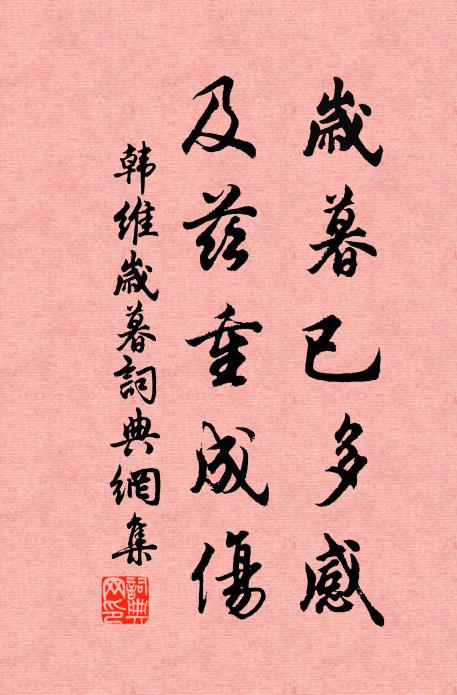 歲暮已多感
及茲重成傷
韩維歲暮詞典網集
詞典
网印